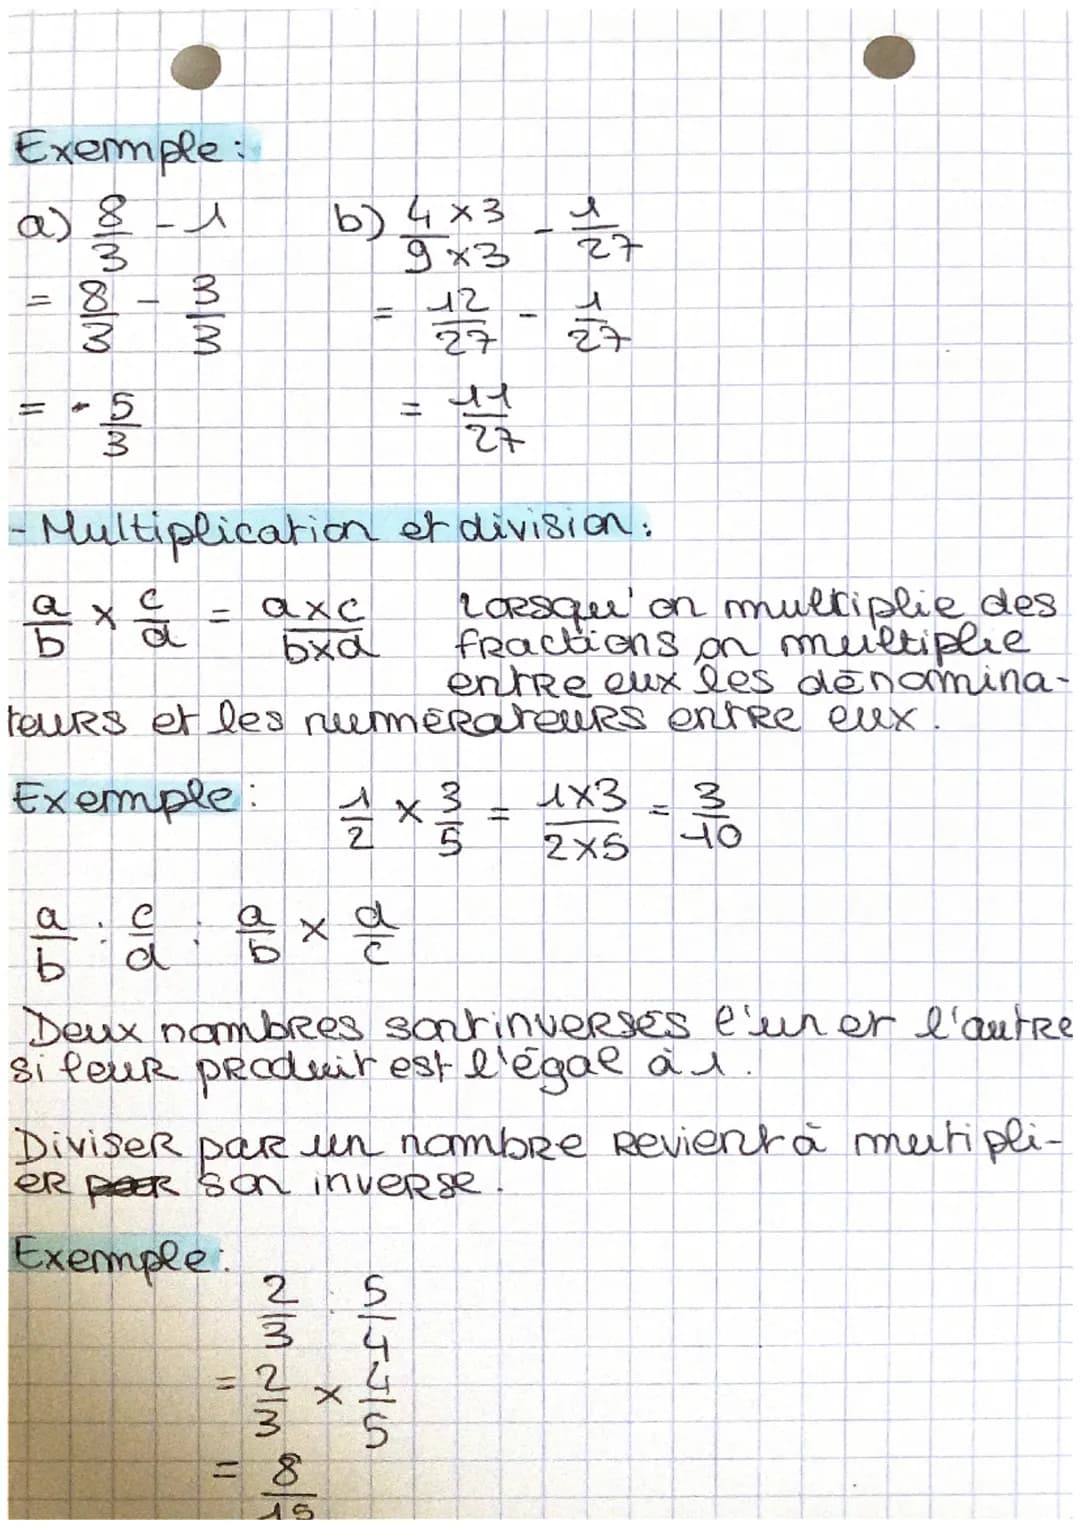 Exemple:
a) 8/3 - 1
= 8/3 - 3/3
= - 5/3
b) 4 x 3 / 9 x 3 - 1/27
= 12/27 - 1/27
= 11/27
- Multiplication et division:
a/b x c/d = a x c / b x d
Lorsqu'on multiplie des
fractions on multiplie
entre eux les dénomina-
teurs et les numérateurs entre eux.
Exemple: 1/2 x 3/5 = 1x3 / 2x5 = 3/10
a/b : c/d : a/b x d/c
Deux nombres sont inverses l'un et l'autre
si leur produit est l'égal à 1.
Diviser par un nombre revient à mutipli-
er par son inverse.
Exemple:
2/3 : 5/4
= 2/3 x 4/5
= 8/15